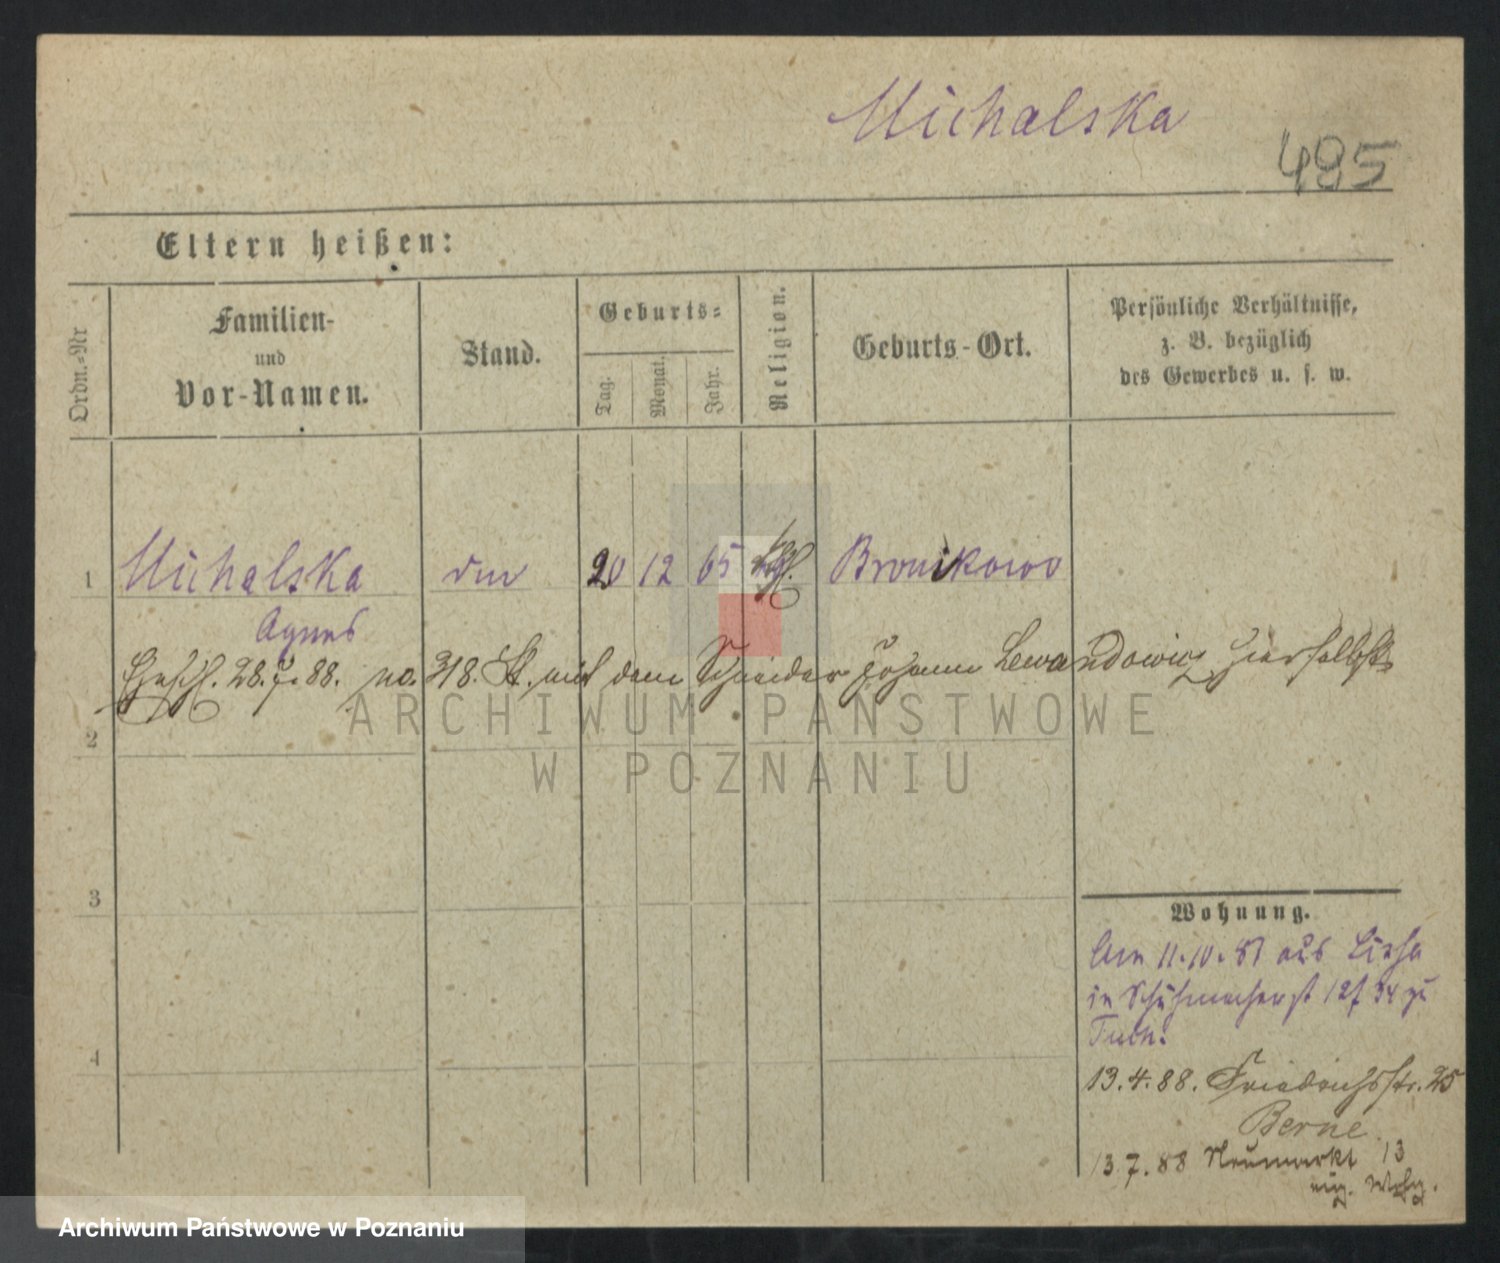 Michalska
485
Eltern heißen:
Ordn.-Nr
Familien-
und
Vor-Namen.
Stand.
Geburts-
Tag.
Monat.
Jahr.
Religion.
Geburts-Ort.
Persönliche Verhältnisse,
z. B. bezüglich
des Gewerbes u. s. w.
1 Michalska 20 12 65 kath. Bronikowo
Agnes
28.7.88. no. 318. St. mit dem Schneider Johann Lewandowicz hierselbst
2
ARCHIWUM PAŃSTWOWE
W POZNANIU
3
Wohnung.
Am 11.10.87 aus Lissa
in Schuhmacherst 12 f zu
4
13.4.88. Friedrichsstr. 25
Berne
13.7.88 Neumarkt 13
eig. Wohg.
Archiwum Państwowe w Poznaniu